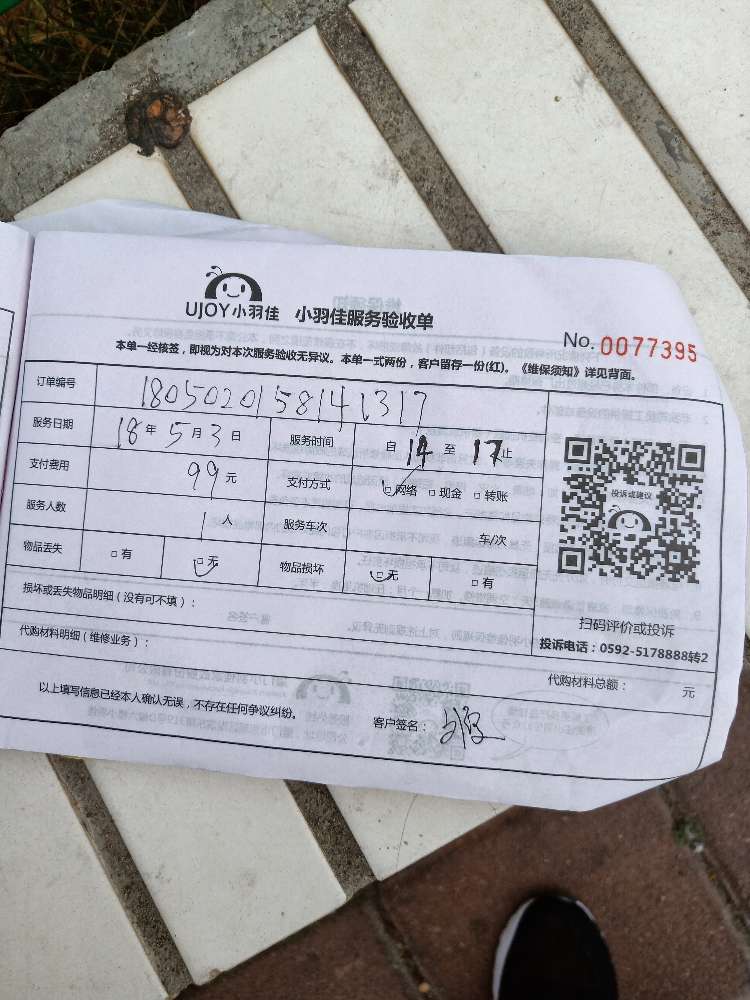 UJOY小羽佳 小羽佳服务验收单
No. 0077395
本单一经核签，即视为对本次服务验收无异议。本单一式两份，客户留存一份(红)。《维保须知》详见背面。
订单编号 1805020158141317
服务日期 18年5月3日 服务时间 自14至17止
支付费用 99元 支付方式 ☑网络 □现金 □转账
服务人数 1人 服务车次 车/次
物品丢失 □有 ☑无 物品损坏 ☑无 □有
投诉或建议
扫码评价或投诉
投诉电话：0592-5178888转2
损坏或丢失物品明细（没有可不填）：
代购材料明细（维修业务）： 代购材料总额： 元
以上填写信息已经本人确认无误，不存在任何争议纠纷。 客户签名：